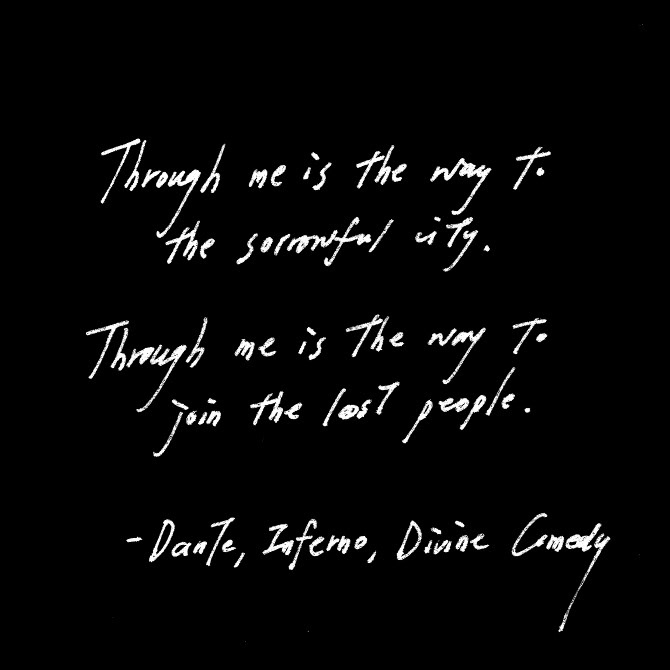 Through me is the way to
the sorrowful city.
Through me is the way to
join the lost people.
- Dante, Inferno, Divine Comedy